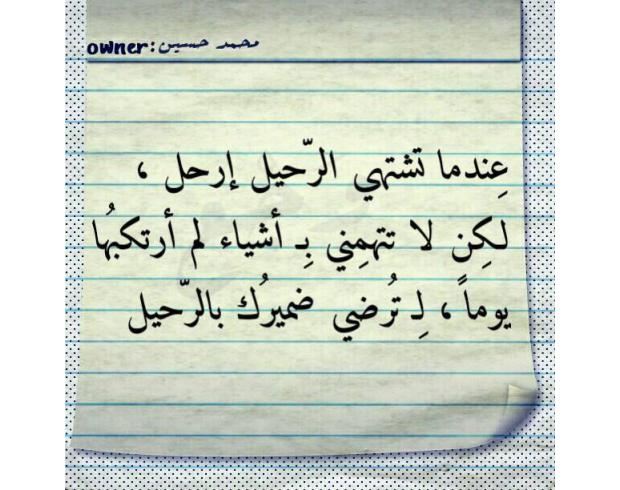 owner: محمد حسين
عِندما تشتهي الرّحيل إرحل ،
لكِن لا تتهمِني بِـ أشياء لم أرتكبهُا
يوماً ، لِـ تُرضي ضميرُك بالرّحيل